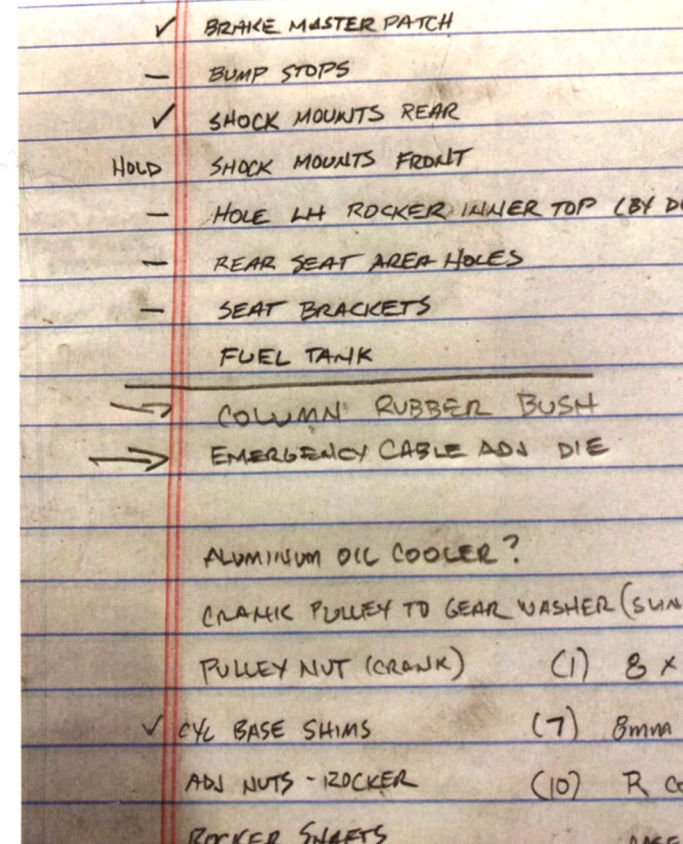 ✓ BRAKE MASTER PATCH
— BUMP STOPS
✓ SHOCK MOUNTS REAR
HOLD SHOCK MOUNTS FRONT
— HOLE LH ROCKER INNER TOP (BY
— REAR SEAT AREA HOLES
— SEAT BRACKETS
FUEL TANK
→ COLUMN RUBBER BUSH
→ EMERGENCY CABLE ADJ DIE
ALUMINUM OIL COOLER?
CRANK PULLEY TO GEAR WASHER
PULLEY NUT (CRANK) (1) 8 X
✓ CYL BASE SHIMS (7) 8mm
ADJ NUTS - ROCKER (10) R
ROCKER SHAFTS